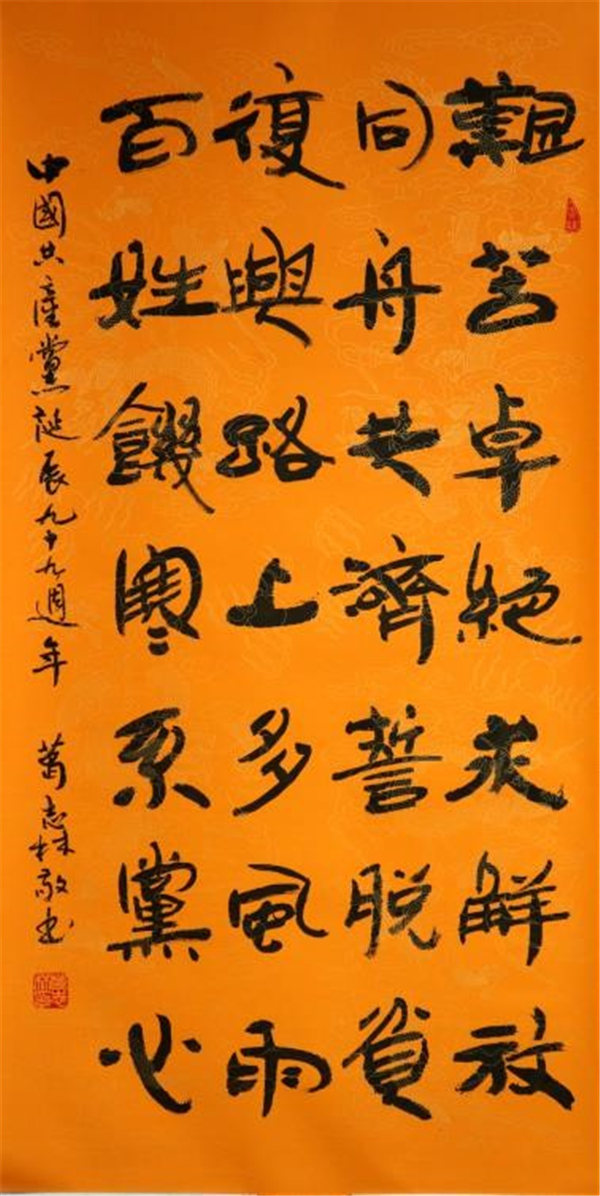 艱苦卓絶求解放
同舟共濟誓脱貧
復興路上多風雨
百姓饑寒系黨心
中國共產黨誕辰九十九週年 葛志林敬书